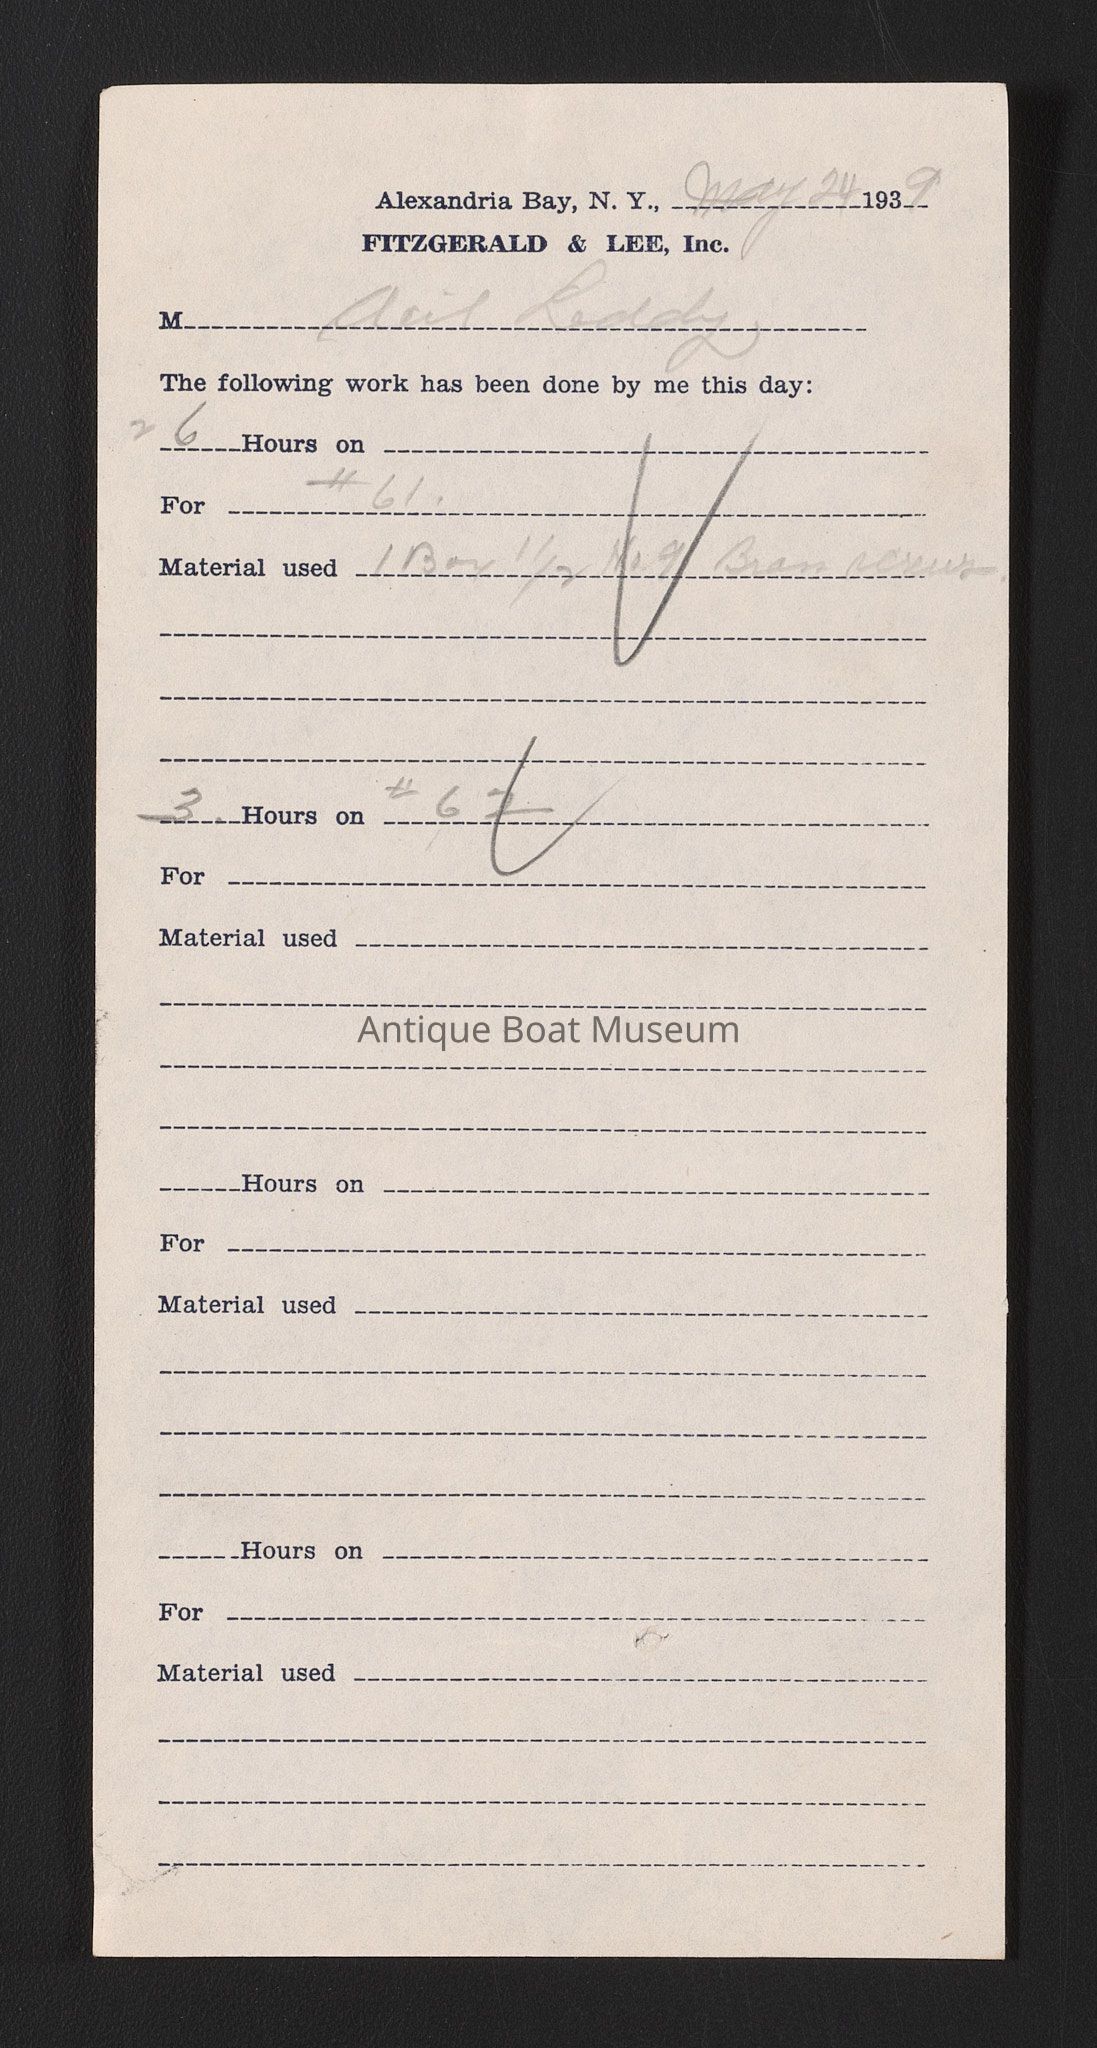 Alexandria Bay, N. Y., May 24 1939
FITZGERALD & LEE, Inc.
M Leddy
The following work has been done by me this day:
6 Hours on
For #61.
Material used 1 Box 1 1/2 No 9 Brass screws.
3 Hours on #62
For
Material used
Antique Boat Museum
Hours on
For
Material used
Hours on
For
Material used